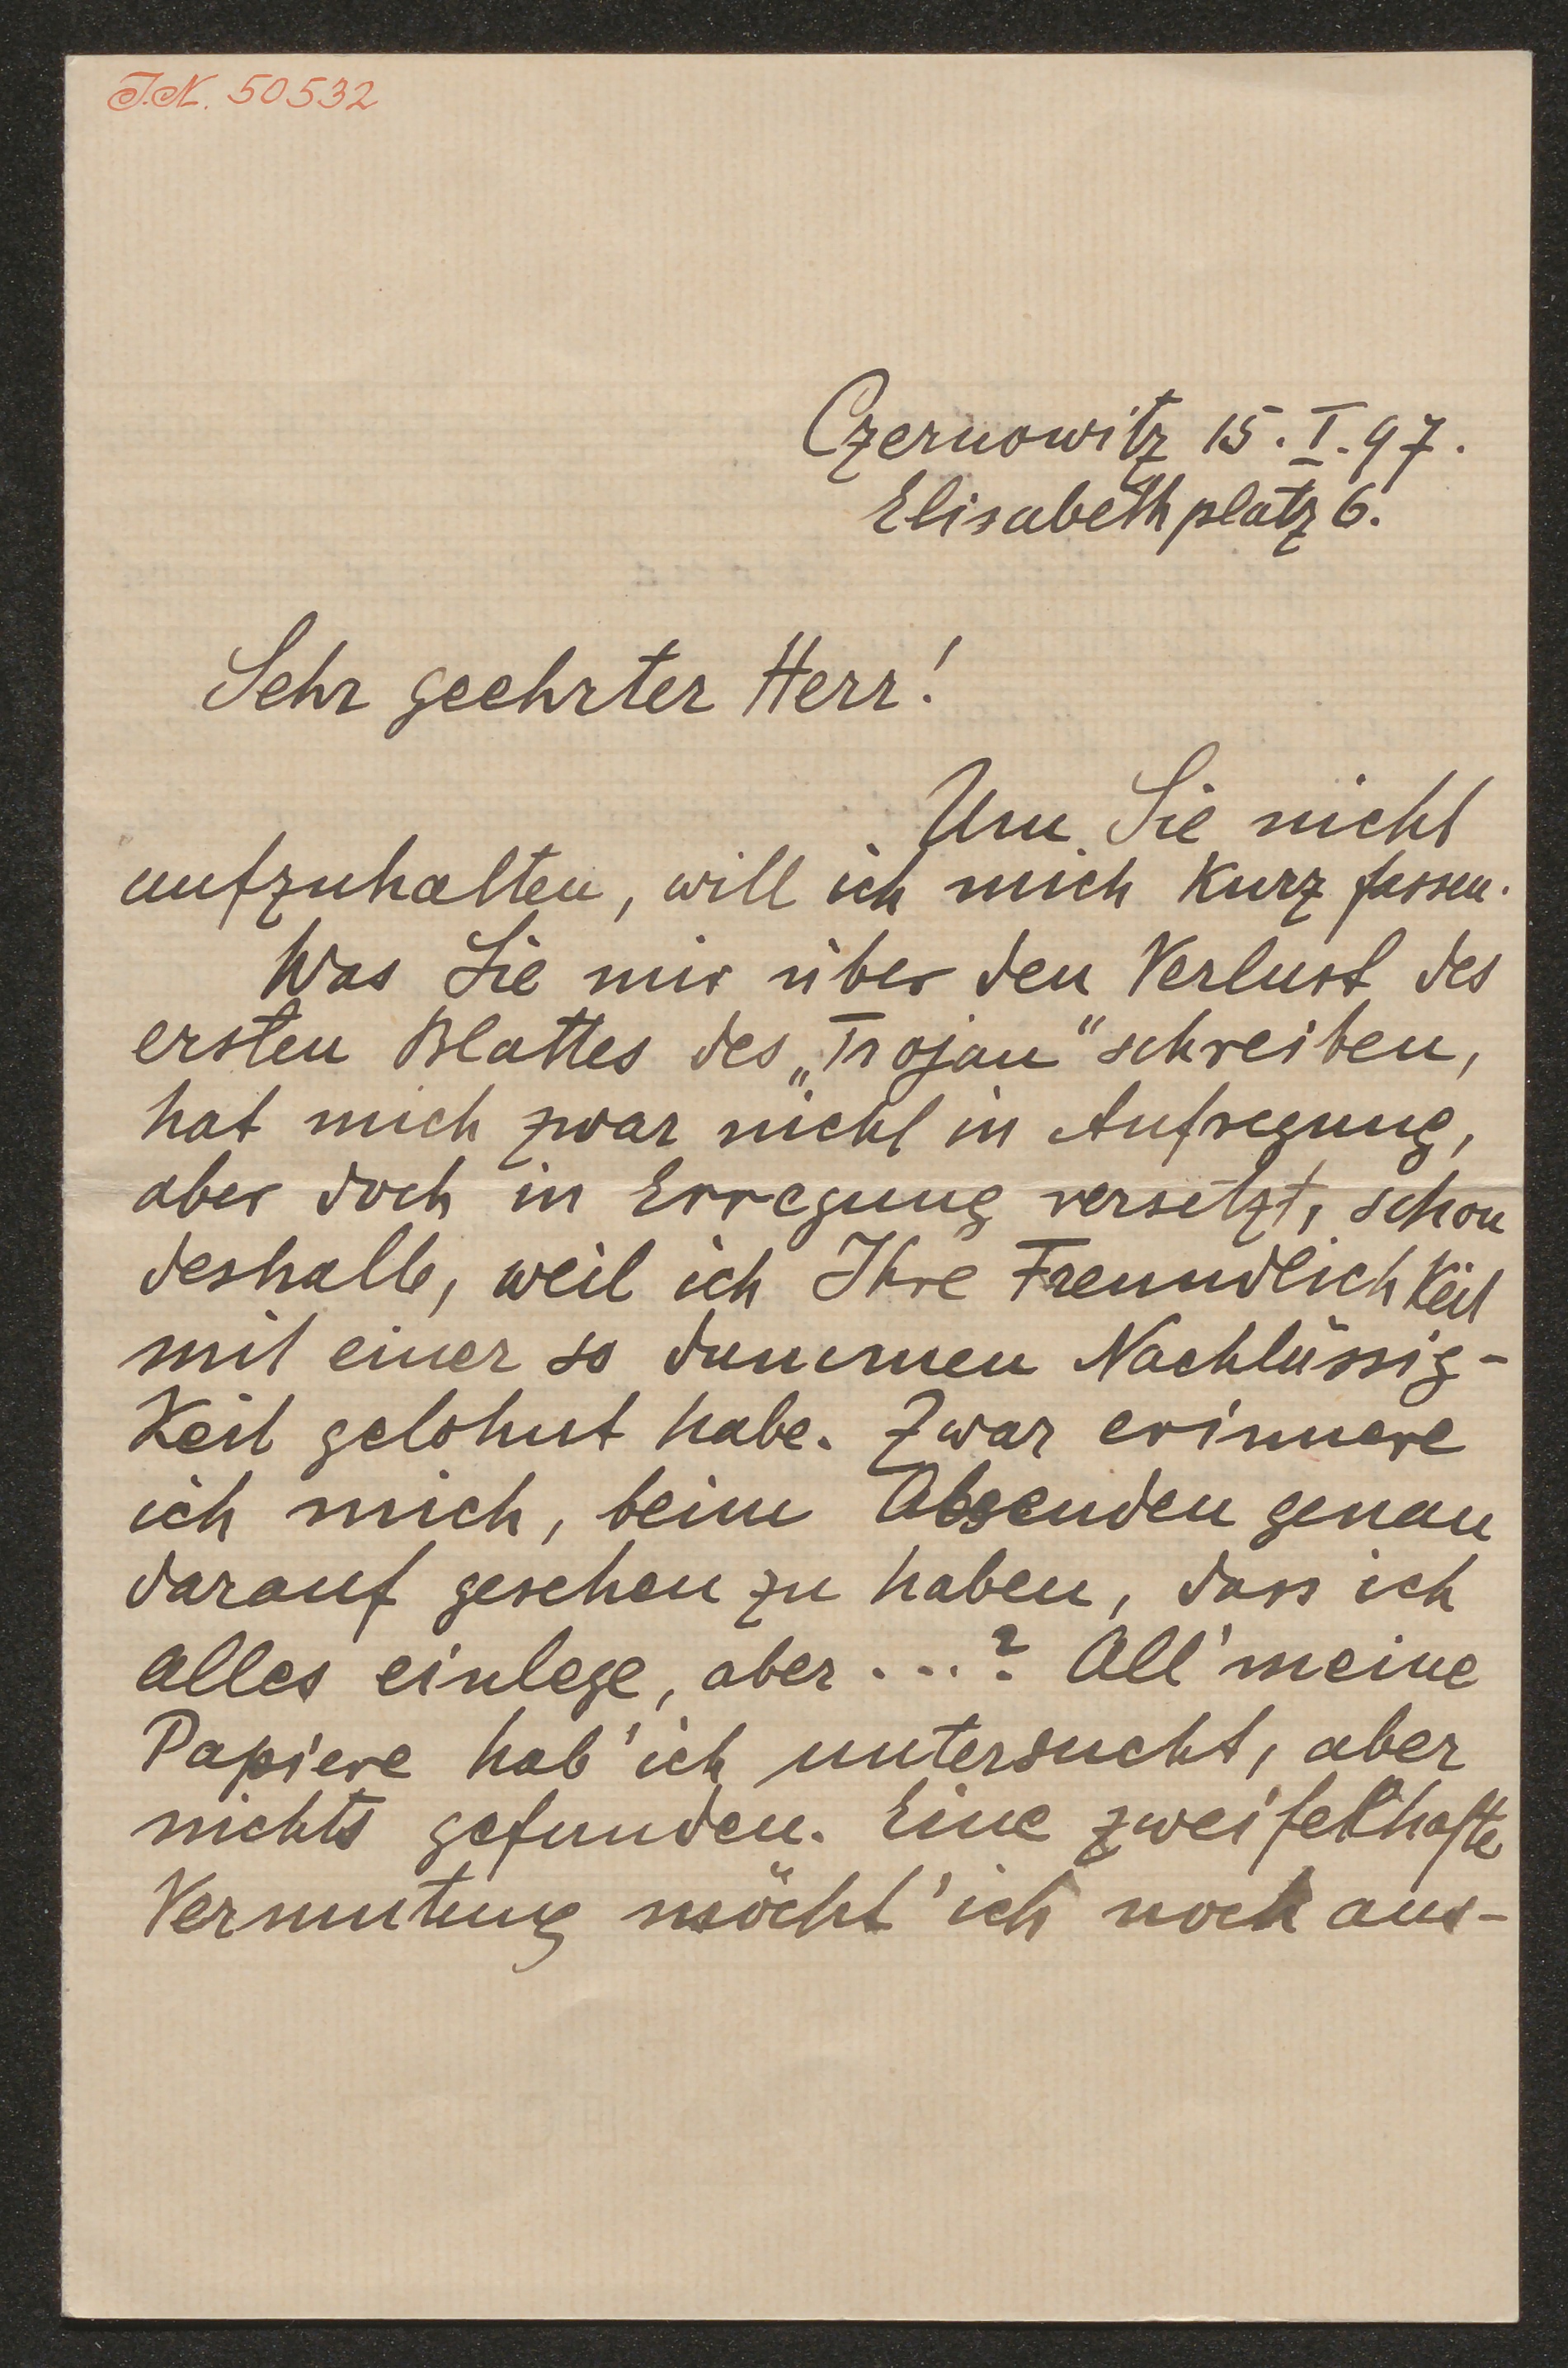 J.N. 50532
Czernowitz 15. I. 97.
Elisabethplatz 6.
Sehr geehrter Herr!
Um Sie nicht
aufzuhalten, will ich mich kurz fassen.
Was Sie mir über den Verlust des
ersten Blattes des „Trojan“ schreiben,
hat mich zwar nicht in Aufregung,
aber doch in Erregung versetzt, schon
deshalb, weil ich Ihre Freundlichkeit
mit einer so dummen Nachlässig-
keit gelohnt habe. Zwar erinnere
ich mich, beim Absenden genau
darauf gesehen zu haben, dass ich
alles einlege, aber ...? All' meine
Papiere hab' ich untersucht, aber
nichts gefunden. Eine zweifelhafte
Vermutung möcht' ich noch aus-